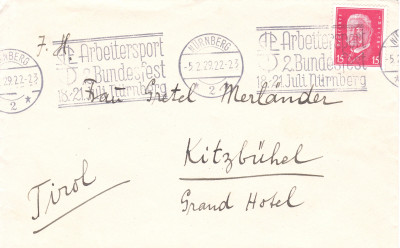 NÜRNBERG
-5.2.29.22-23
2
Arbeitersport
2 Bundesfest
18-21. Juli Nürnberg
NÜRNBERG
-5.2.29.22-23
2
Arbeitersport
2 Bundesfest
18-21. Juli Nürnberg
15 15
Frau Gretel Merländer
Kitzbühel
Tirol
Grand Hotel